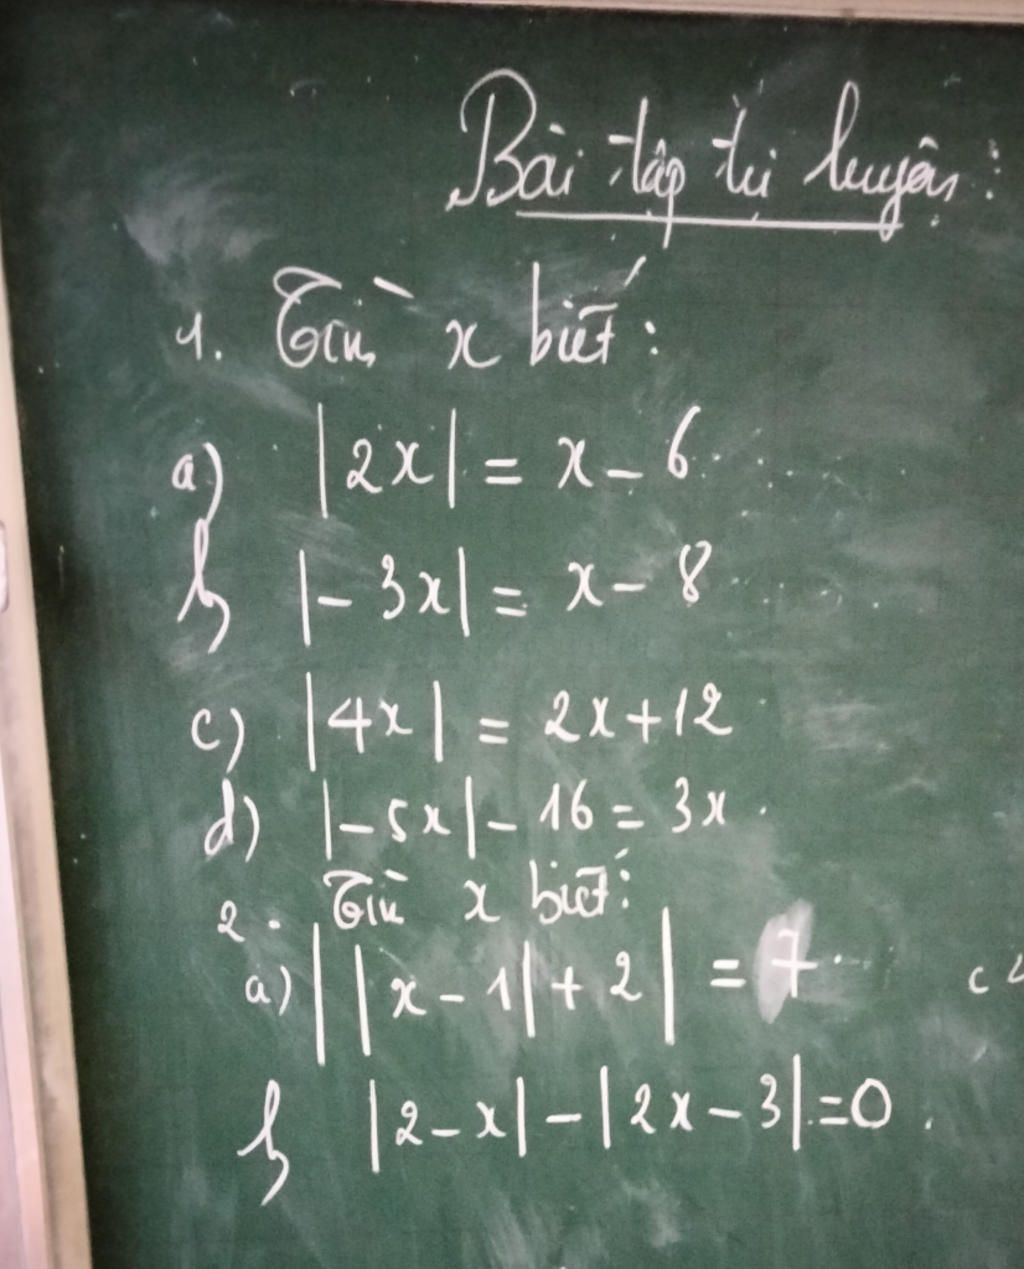 Bài tập tự luyện:
1. Tìm x biết:
a) |2x| = x - 6
b) |-3x| = x - 8
c) |4x| = 2x + 12
d) |-5x| - 16 = 3x.
2. Tìm x biết:
a) ||x - 1| + 2| = 7
b) |2 - x| - |2x - 3| = 0.